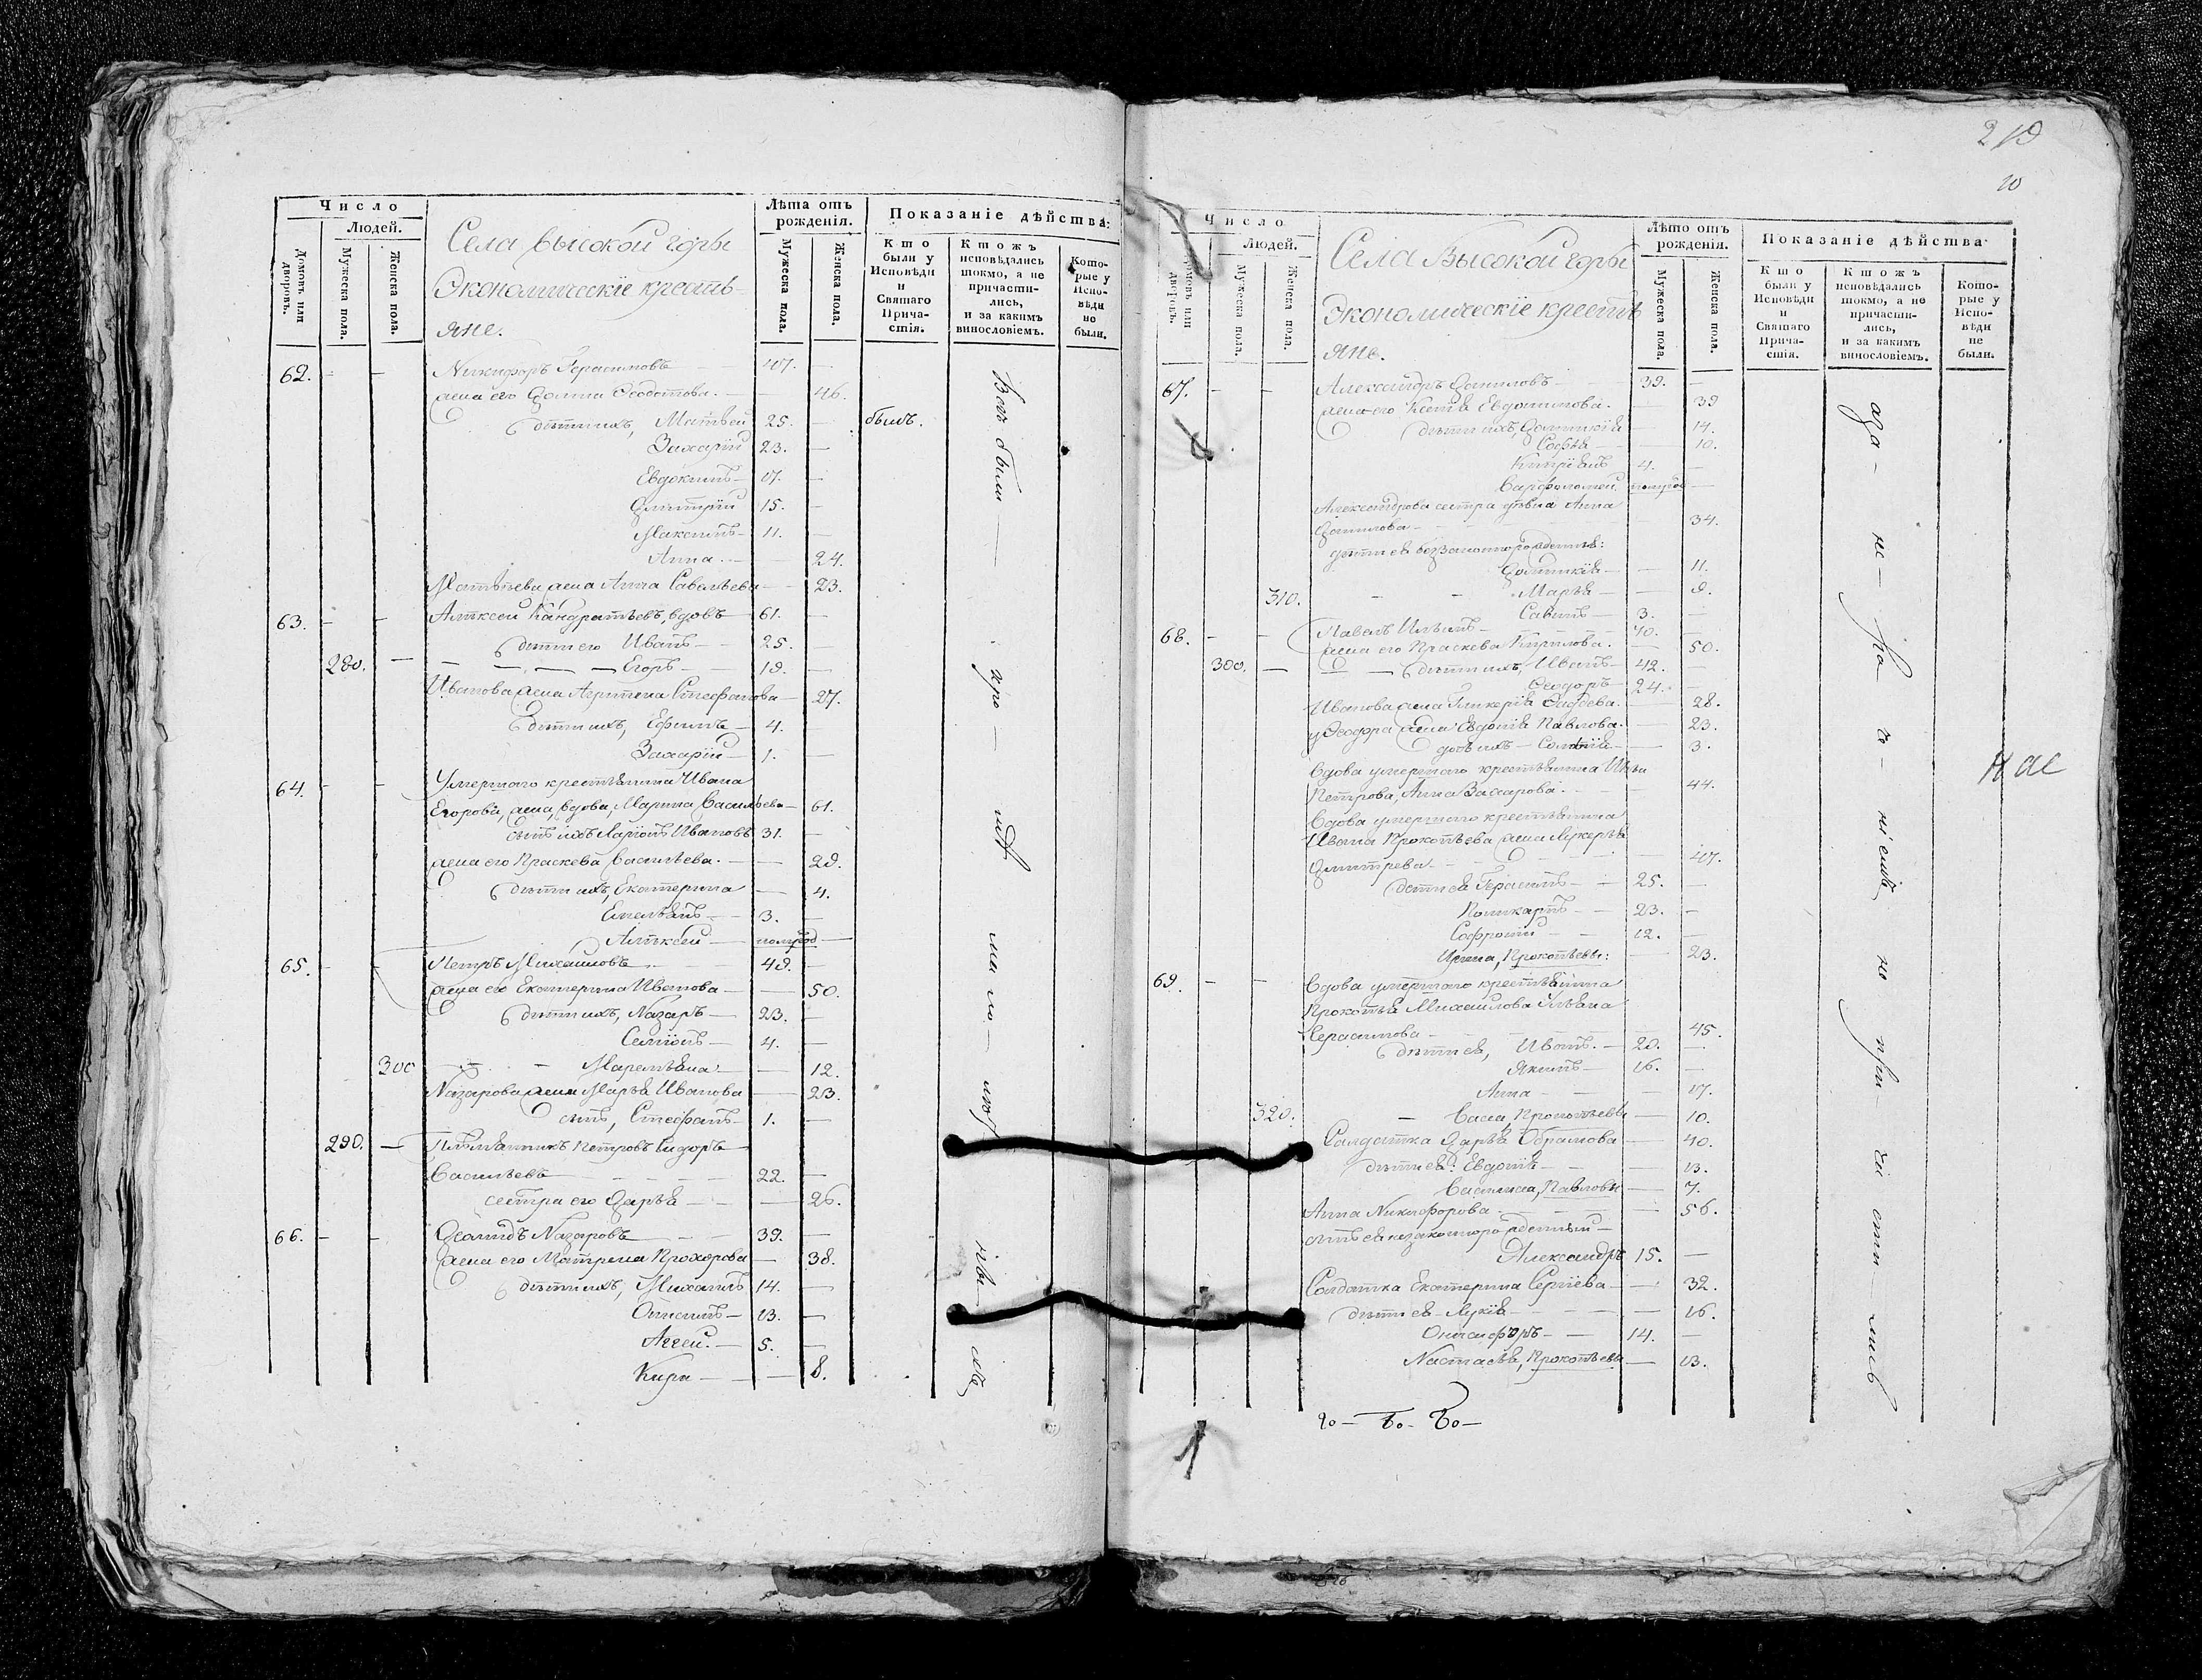 Число
Людей.
Домовъ или дворовъ.
Мужеска пола.
Женска пола.
Села высокой горы
Экономическіе кресть-
яне.
Лѣта отъ рожденія.
Мужеска пола.
Женска пола.
Показаніе дѣйства:
Кто были у Исповѣди и Святаго Прича-стія.
Ктожъ исповѣдались токмо, а не причасти-лись, и за какимъ винословіемъ.
Кото-рые у Испо-вѣди не были.
62. Никифоръ Герасимовъ 47.
жена его Федотова. 46.
дѣти ихъ, Матвей 25. былъ.
Захарій 23.
Евдокимъ 17.
Дмитрій 15.
Максимъ 11.
Анна 24.
Матвѣева жена Анна Савельева 23.
63. Алѣксей Кандратьевъ, вдовъ 61.
дѣти его Иванъ 25.
280. Егоръ 19.
Иванова жена Агрипена Стефанова 27.
дѣти ихъ, Ефимъ 4.
Захарій 1.
64. Умершаго крестьянина Ивана
Егорова, жена, вдова, Марина Васильева 61.
сынъ ихъ Ларіонъ Ивановъ 31.
жена его Праскева Васильева. 29.
дѣти ихъ, Екатерина 4.
Емельянъ 3.
Алѣксей полугод
65. Петръ Михаиловъ 49.
жена его Екатерина Иванова 50.
дѣти ихъ, Назаръ 23.
Семіонъ 4.
300 Маремьяна 12.
Назарова жена Марья Иванова 23.
сынъ, Стефанъ 1.
290. Племянникъ Петровъ Сидоръ
Васильевъ 22.
сестра его Дарья 26.
66. Леонидъ Назаровъ 39.
жена его Матрена Прохорова 38.
дѣти ихъ, Михаилъ 14.
Онисимъ 13.
Аггей. 5.
Кира 8.
Всѣ были
219
10
Число
Людей.
Домовъ или дворовъ.
Мужеска пола.
Женска пола.
Села Высокой горы
Экономическіе кресть
яне.
Лѣто отъ рожденія.
Мужеска пола.
Женска пола.
Показаніе дѣйства
Кто были у Исповѣди и Святаго Прича-стія.
Ктожъ исповѣдались токмо, а не причасти-лись, и за какимъ винословіемъ.
Кото-рые у Испо-вѣди не были.
67. Александръ Даниловъ 39.
жена его Евдокимова. 39
дѣти ихъ, 14.
Софья 10.
Кипріянъ 4.
Варфоломей. полугод
Александрова сестра девка Анна
Данилова 34.
11.
310. Марья 9.
Савинъ 3.
68. Павелъ Ильинъ 70.
жена его Праскева Кирилова. 50.
300. дѣти ихъ, Иванъ 42.
Феодоръ 24.
Иванова жена Гликерія Фадѣева. 28.
у Феодора жена Евдокія Павлова. 23.
дочь ихъ 3.
Вдова умершаго крестьянина Ильи
Петрова, Анна Захарова. 44.
Вдова умершаго крестьянина
Ивана Прокопьева жена Лукерья
Дмитрева 47.
дѣти ея Герасимъ 25.
Поликарпъ 23.
Софроній 12.
Ирина, Прокопьевы: 23.
69. Вдова умершаго крестьянина
Прокопья Михайлова Ульяна
Герасимова 45.
дѣти ея, Иванъ. 20.
Якимъ 16.
Анна 17.
320. Васса, Прокопьевы 10.
Салдатка Дарья Обрамова 40.
дѣти ея: Евдокія 13.
Василиса, Павловы 7.
Анна Никифорова 56.
сынъ ея незаконорожденный
Александръ 15.
Солдатка Екатерина Сергіева 32.
дѣти ея Лукія 16.
Онисифоръ 14.
Настасья, Прокопьевы 13.